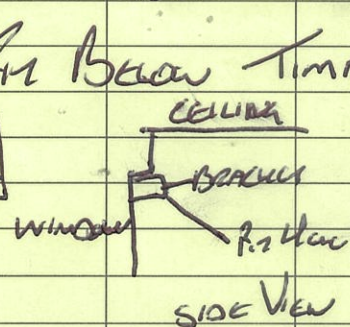 BELOW TIMM
CEILING
BRACKET
WINDOW
SIDE VIEW